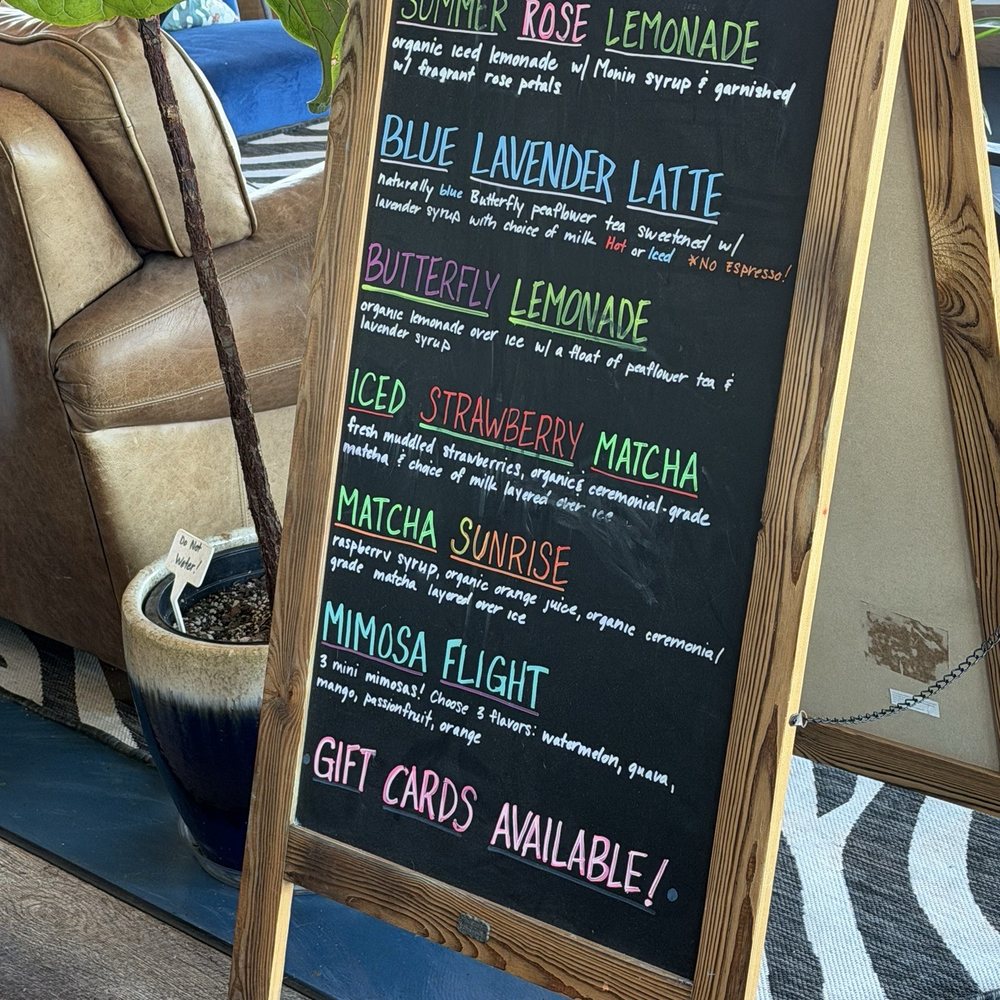 SUMMER ROSE LEMONADE
organic iced lemonade w/ Monin syrup & garnished
w/ fragrant rose petals
BLUE LAVENDER LATTE
naturally blue Butterfly peaflower tea sweetened w/
lavender syrup with choice of milk Hot or Iced *No Espresso!
BUTTERFLY LEMONADE
organic lemonade over ice w/ a float of peaflower tea &
lavender syrup
ICED STRAWBERRY MATCHA
fresh muddled strawberries, organic & ceremonial-grade
matcha & choice of milk layered over ice
MATCHA SUNRISE
raspberry syrup, organic orange juice, organic ceremonial
grade matcha layered over ice
MIMOSA FLIGHT
3 mini mimosas! Choose 3 flavors: watermelon, guava,
mango, passionfruit, orange
GIFT CARDS AVAILABLE!
Do Not
Water!